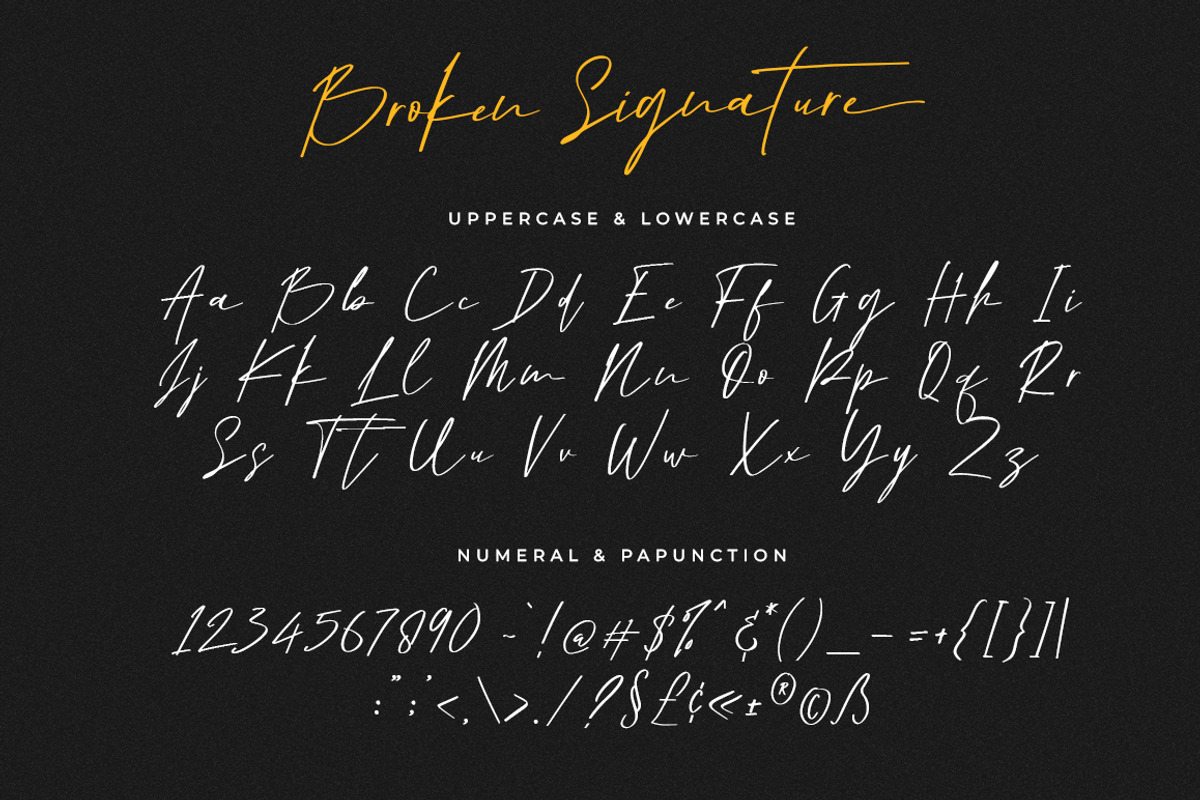 Broken Signature
UPPERCASE & LOWERCASE
Aa Bb Cc Dd Ee Ff Gg Hh Ii
Jj Kk Ll Mm Nn Oo Pp Qq Rr
Ss Tt Uu Vv Ww Xx Yy Zz
NUMERAL & PAPUNCTION
1234567890 ~`!@#$%^&*()_-=+{[}]|
:";'<,\>./?§£¢«±®©ß